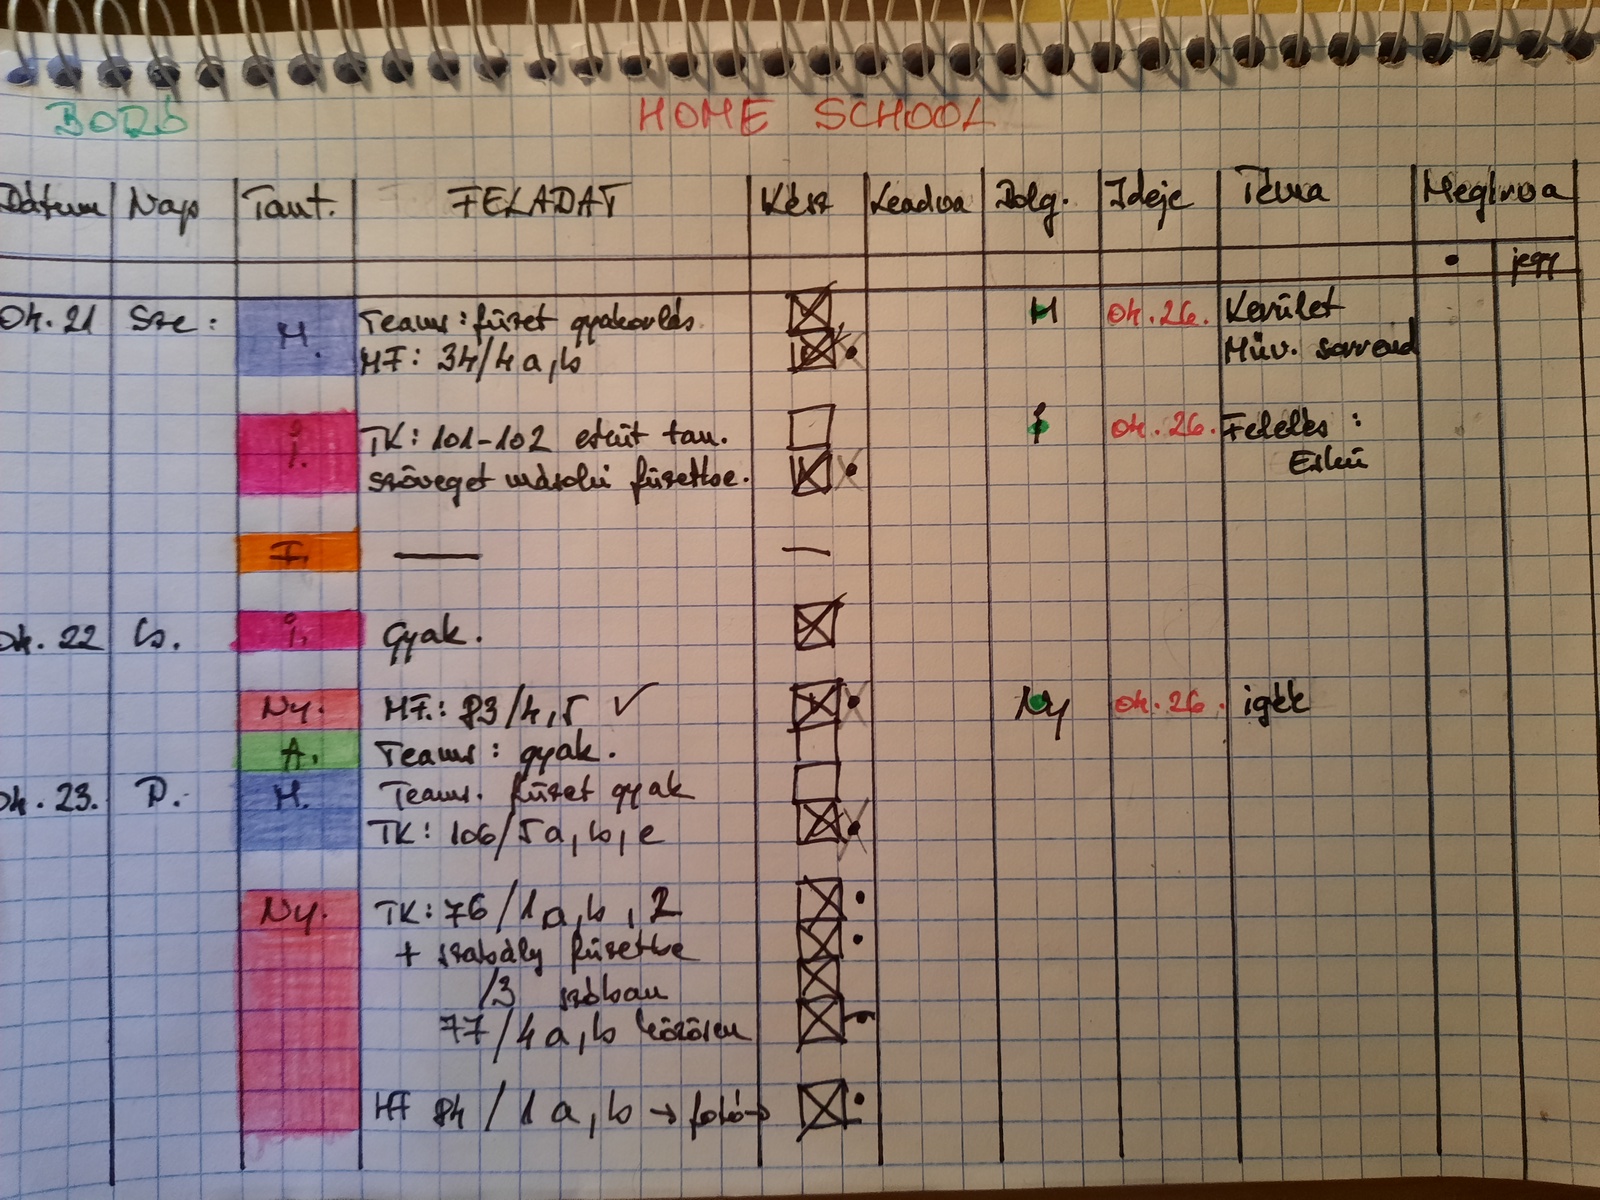 BORÓ HOME SCHOOL
Dátum Nap Tant. FELADAT Kész Leadva Dolg. Ideje Téma Megírva
• jegy
Ok. 21 Sze: M. Teams: füzet gyakorlás M Ok. 26. Kerület
MF: 34/4 a, b Műv. sorrend
i. TK: 101-102 esküt tan. Ok. 26. Felelés:
szöveget másolni füzetbe. Eskü
I. —
Ok. 22 Cs. i. Gyak.
Ny. MF.: 83/4, 5 ✓ Ny Ok. 26. igék
A. Teams: gyak.
Ok. 23. P. M. Teams. füzet gyak
TK: 106/5 a, b, e
Ny. TK: 76/1 a, b, 2
+ szabály füzetbe
/3 szóban
77/4 a, b közösen
HF 84/1 a, b → fotó→